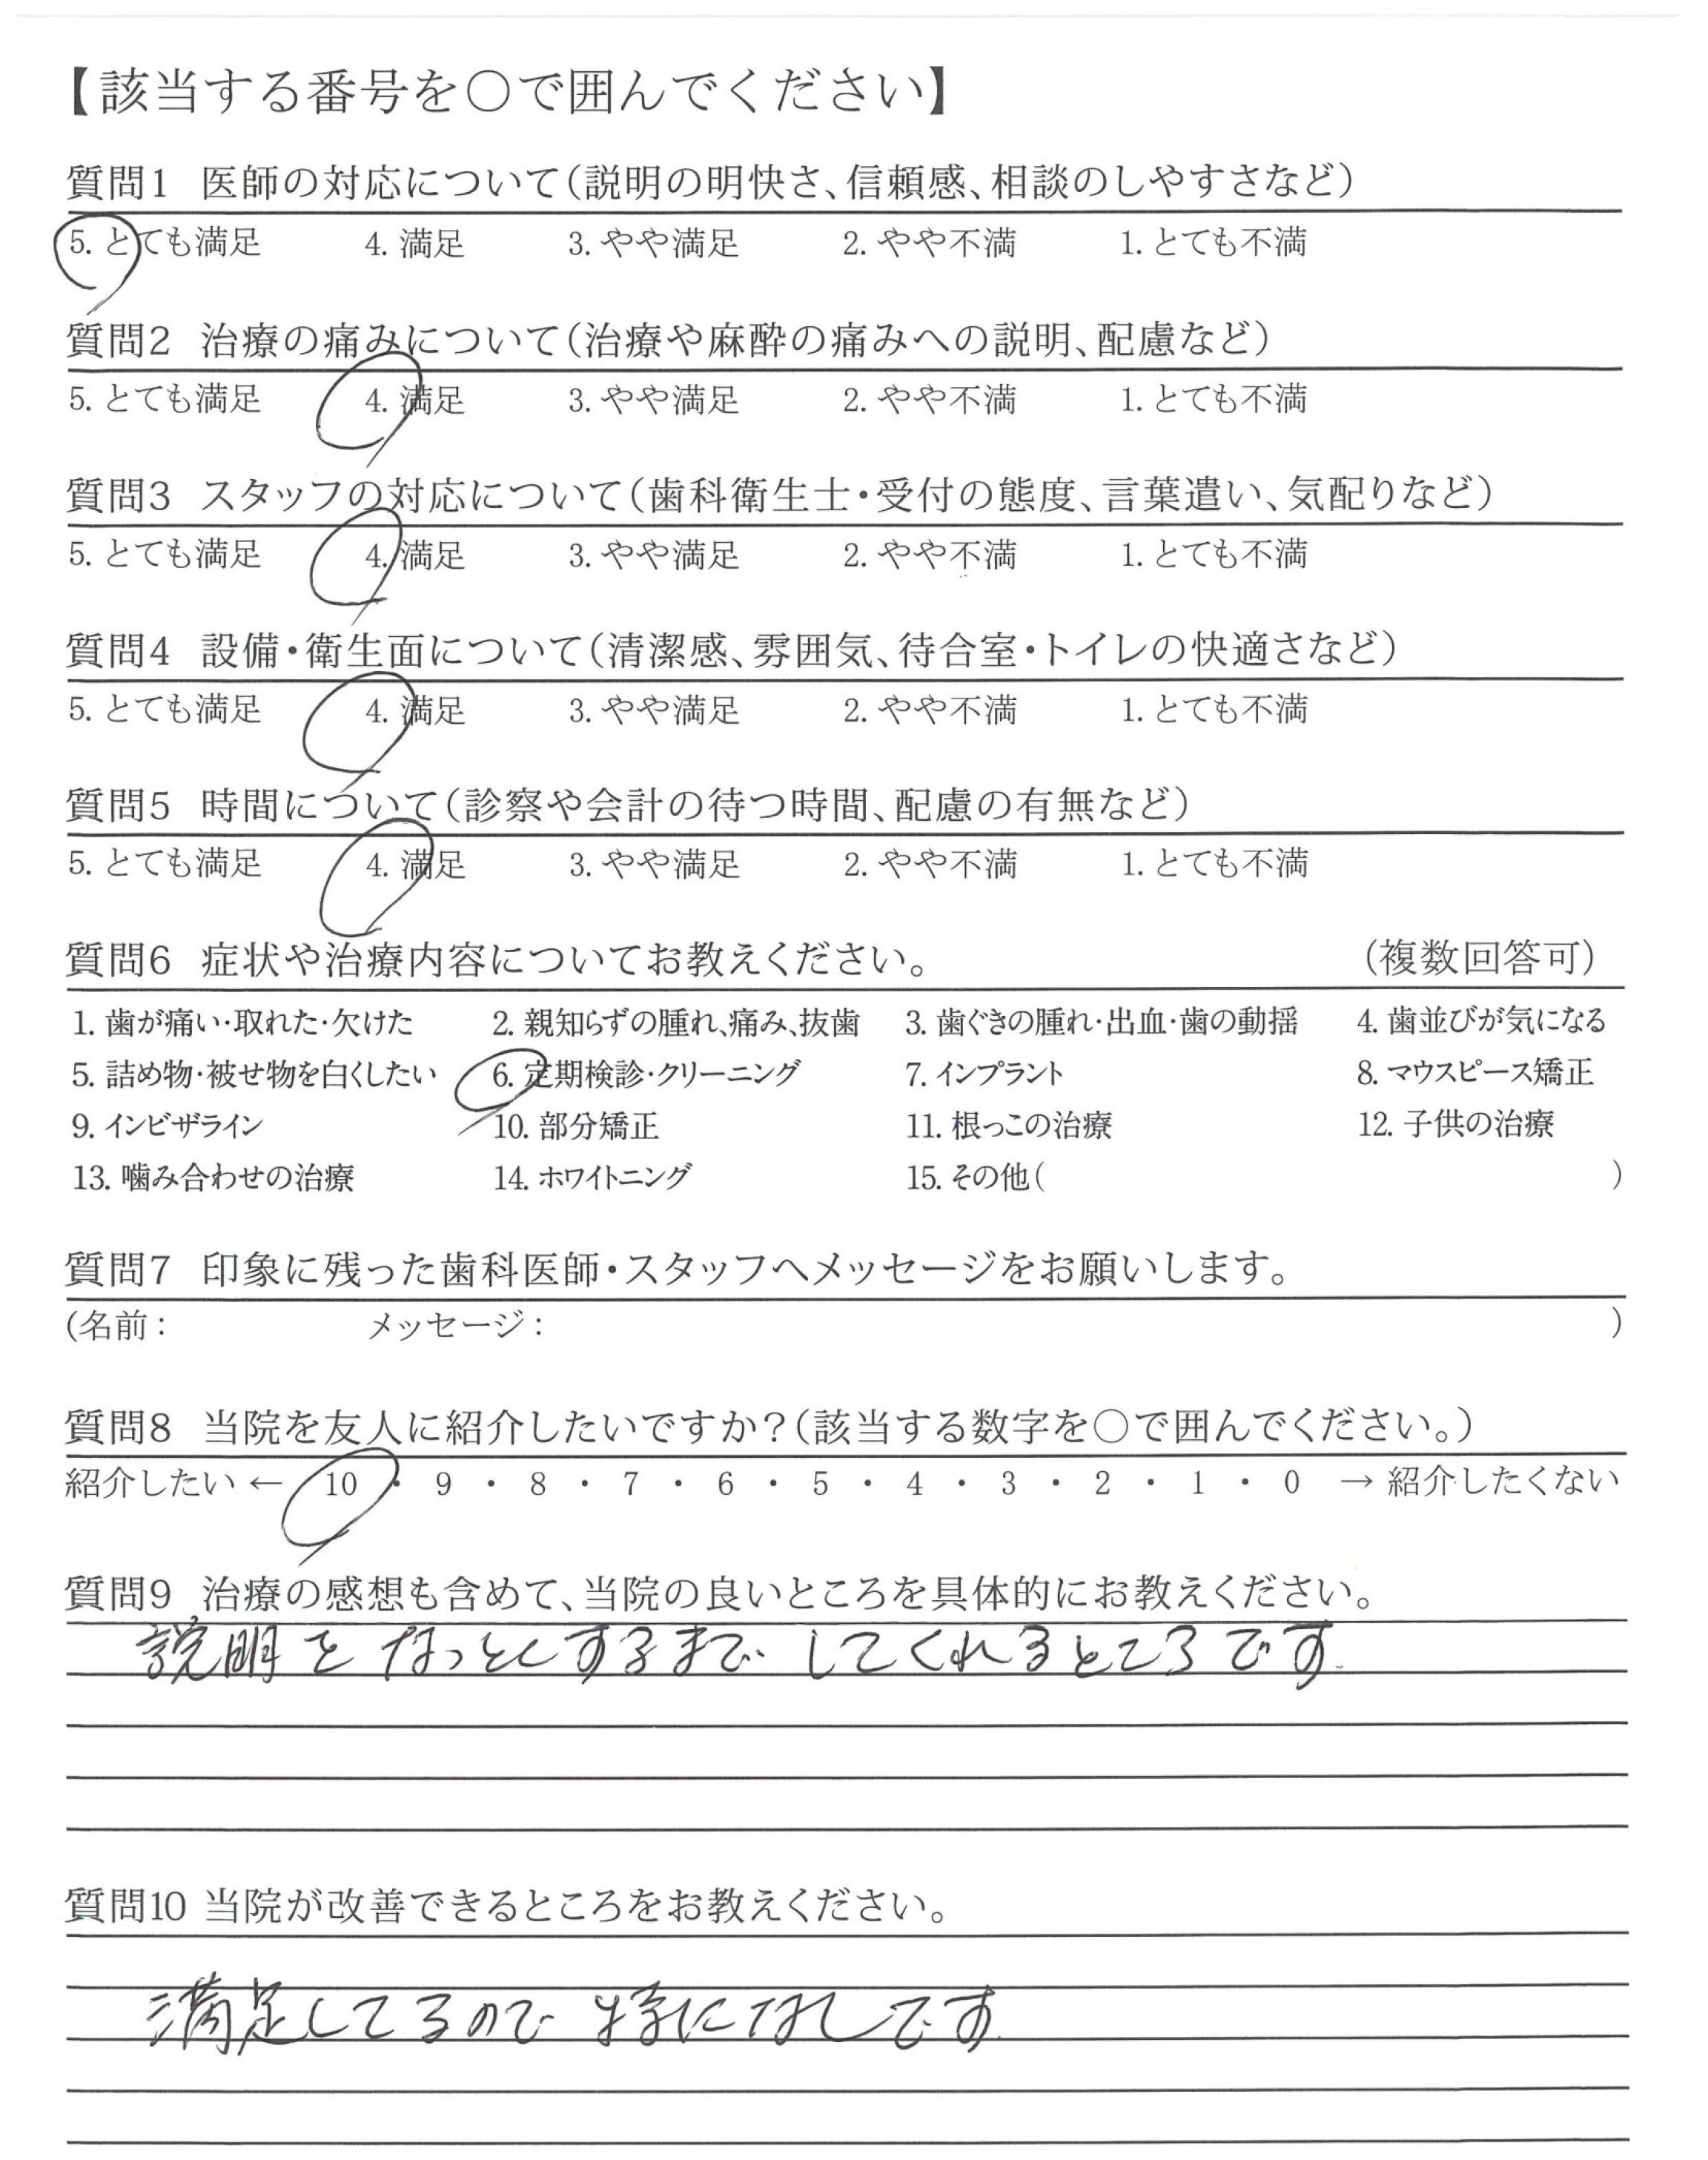 【該当する番号を○で囲んでください】
質問1 医師の対応について(説明の明快さ、信頼感、相談のしやすさなど)
5. とても満足 4. 満足 3. やや満足 2. やや不満 1. とても不満
質問2 治療の痛みについて(治療や麻酔の痛みへの説明、配慮など)
5. とても満足 4. 満足 3. やや満足 2. やや不満 1. とても不満
質問3 スタッフの対応について(歯科衛生士・受付の態度、言葉遣い、気配りなど)
5. とても満足 4. 満足 3. やや満足 2. やや不満 1. とても不満
質問4 設備・衛生面について(清潔感、雰囲気、待合室・トイレの快適さなど)
5. とても満足 4. 満足 3. やや満足 2. やや不満 1. とても不満
質問5 時間について(診察や会計の待つ時間、配慮の有無など)
5. とても満足 4. 満足 3. やや満足 2. やや不満 1. とても不満
質問6 症状や治療内容についてお教えください。 (複数回答可)
1. 歯が痛い・取れた・欠けた 2. 親知らずの腫れ、痛み、抜歯 3. 歯ぐきの腫れ・出血・歯の動揺 4. 歯並びが気になる
5. 詰め物・被せ物を白くしたい 6. 定期検診・クリーニング 7. インプラント 8. マウスピース矯正
9. インビザライン 10. 部分矯正 11. 根っこの治療 12. 子供の治療
13. 噛み合わせの治療 14. ホワイトニング 15. その他( )
質問7 印象に残った歯科医師・スタッフへメッセージをお願いします。
(名前: メッセージ: )
質問8 当院を友人に紹介したいですか?(該当する数字を○で囲んでください。)
紹介したい ← 10 ・ 9 ・ 8 ・ 7 ・ 6 ・ 5 ・ 4 ・ 3 ・ 2 ・ 1 ・ 0 → 紹介したくない
質問9 治療の感想も含めて、当院の良いところを具体的にお教えください。
説明を なっとくするまで してくれるところです
質問10 当院が改善できるところをお教えください。
満足してるので 特になしです